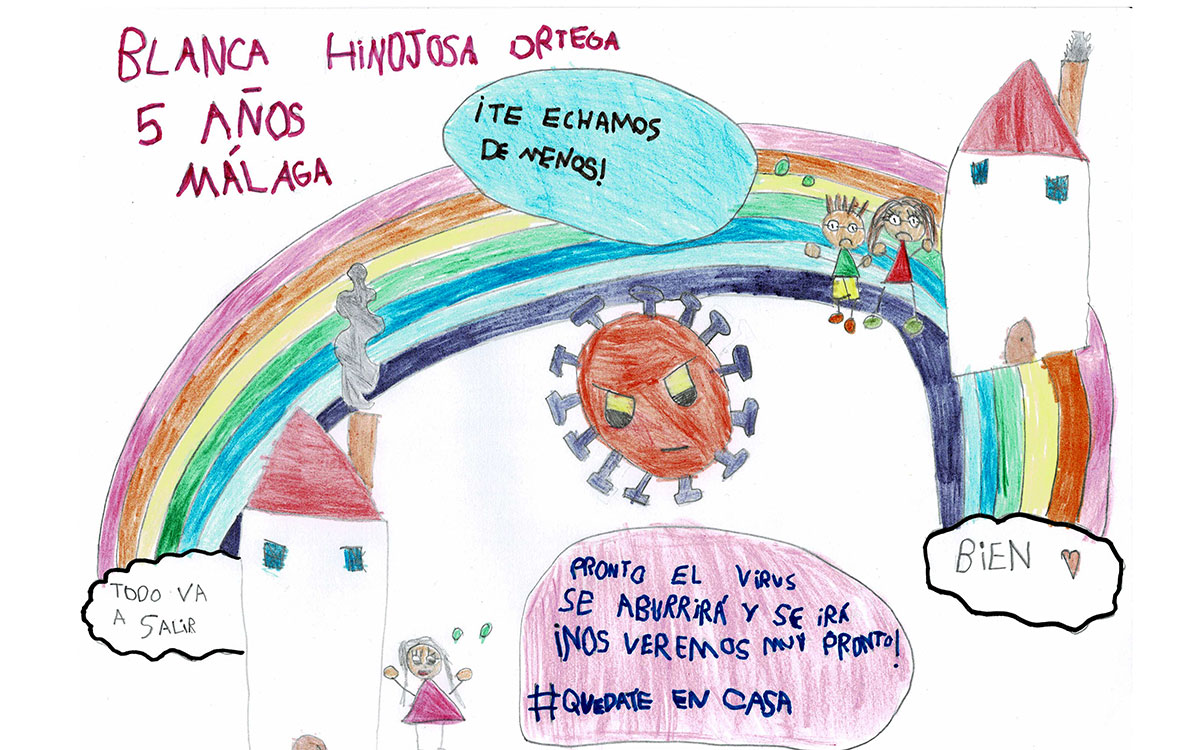 BLANCA HINOJOSA ORTEGA
5 AÑOS
MÁLAGA
¡TE ECHAMOS
DE MENOS!
TODO VA
A SALIR
BIEN
PRONTO EL VIRUS
SE ABURRIRÁ Y SE IRÁ
¡NOS VEREMOS MUY PRONTO!
#QUEDATE EN CASA